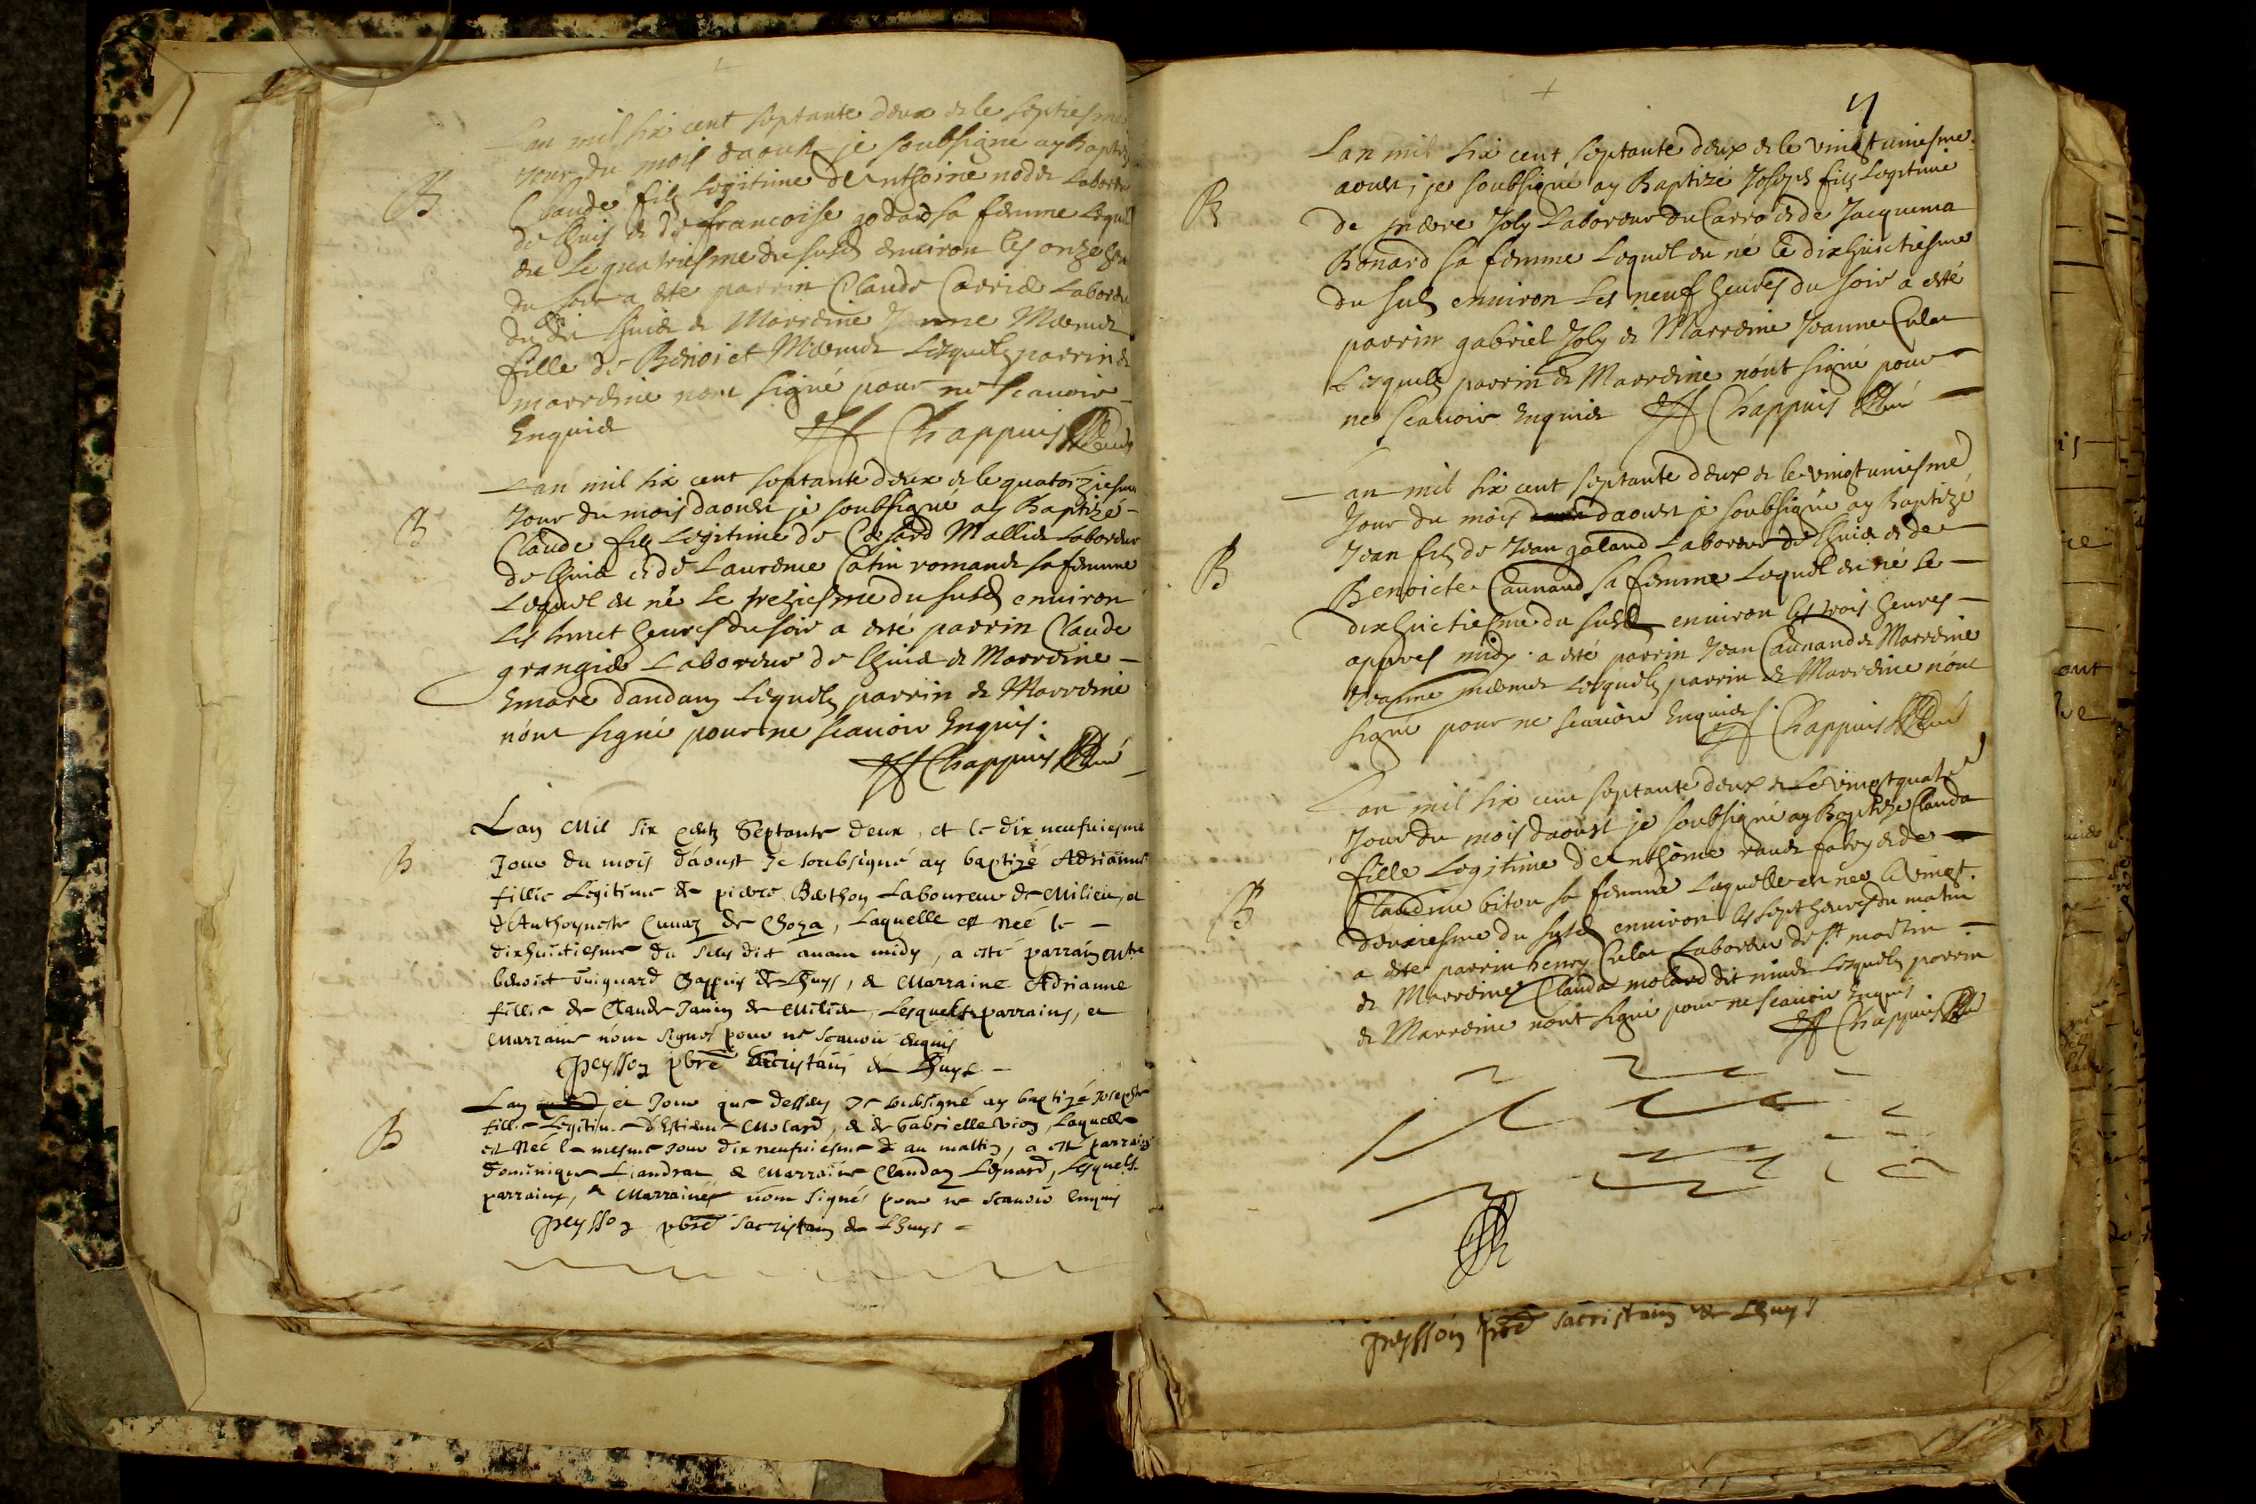 Lan mil six cent septante deux et le septiesme
Jour du mois daoust je soubsigne ay Baptizé
B
Claude filz Legitime dAnthoine nodet Laboreur
de Lhuis et de francoise godard sa femme Lequel
est Le quatriesme du susd environ les onze heu
du soir a este parrin Claude Carrié Laboreu
dudit Lhuis et Marreine Jeanne
fille de Benoict Lesquelz parrin et
marreine nont signé pour ne scavoir
Enquis
Chappuis Curé
Lan mil six cent septante deux et le quatorziesme
Jour du mois daoust je soubsigné ay Baptizé
B
Claude filz Legitime de Cesard Mallie Laboreur
de Lhuis et de Laurence Catin romand sa femme
Lequel est né Le treziesme du susd environ
Les huict heures du soir a esté parrin Claude
grangié Laboreur de Lhuis et Marreine
Emare dandan Lesquelz parrin et Marreine
nónt signé pour ne scavoir Enquis.
Chappuis Curé
Lan Mil six centz Septante deux, et le dix neufviesme
B
Jour du mois d'aoust Je soubsigné ay baptizé Adrianne
fillie Legitime de pierre Berthon Laboureur de Milieu, et
d'Anthoynette Cunaz de Choza, Laquelle est neé le
dixhuitiesme du susdit avant midy, a esté parrain
benoict Guiguard Chappuis de Lhuys, et Marraine Adrianne
fillie de Claude Janin de Milieu, Lesquels parrains, et
Marraine nont signés pour ne scavoir enquis
Peysson pbre Sacristain de Lhuys
Lan et Jour que dessus Je soubsigné ay baptizé Josephte
B
fillie Legitime d'Estienne Molard, et de Gabrielle Vion, Laquelle
est neé le mesme Jour dixneufviesme au mattin, a esté parrain
dominique Liandrat et Marraine Claudaz Lesnard, Lesquels
parrains, et Marraines nont signés pour ne scavoir enquis
Peysson pbre Sacristain de Lhuys
Lan mil six cent septante deux et le vingtuniesme
aoust, je soubsigné ay Baptizé Joseph filz Legitime
B
de pierre Joly Laboreur du Carro et de Jacquema
Bonard sa femme Lequel est né le dixhuictiesme
du susd environ Les neuf heures du soir a esté
parrin gabriel Joly et Marreine Jeanne Culat
Lesquelz parrin et Marreine nónt signé pour
ne scavoir Enquis Chappuis Curé
Lan mil six cent septante deux et le vingtuniesme
Jour du mois daoust je soubsigné ay baptizé
B
Jean filz de Jean galand Laboreur de Lhuis et de
Benoicte Caunand sa femme Lequel est né le
dixhuictiesme du susd environ les trois heures
appres midy a esté parrin Jean Caunand et Marreine
Jeanne Lesquelz parrin et Marreine nónt
signé pour ne scavoir Enquis. Chappuis Curé
Lan mil six cent septante deux et Le vingtquatre
Jour du mois daoust je soubsigné ay Baptizé Clauda
fille Legitime dAnthoine faby et de
B
Claudine biton sa femme Laquelle est née le vingt
deuxiesme du susd environ les sept heures du matin
a esté parrin henry Culat Laboreur de st martin
et Marreine Clauda molard dit Lesquelz parrin
et Marreine nónt signé pour ne scavoir Enquis
Chappuis Curé
Peysson pbre Sacristain de Lhuys